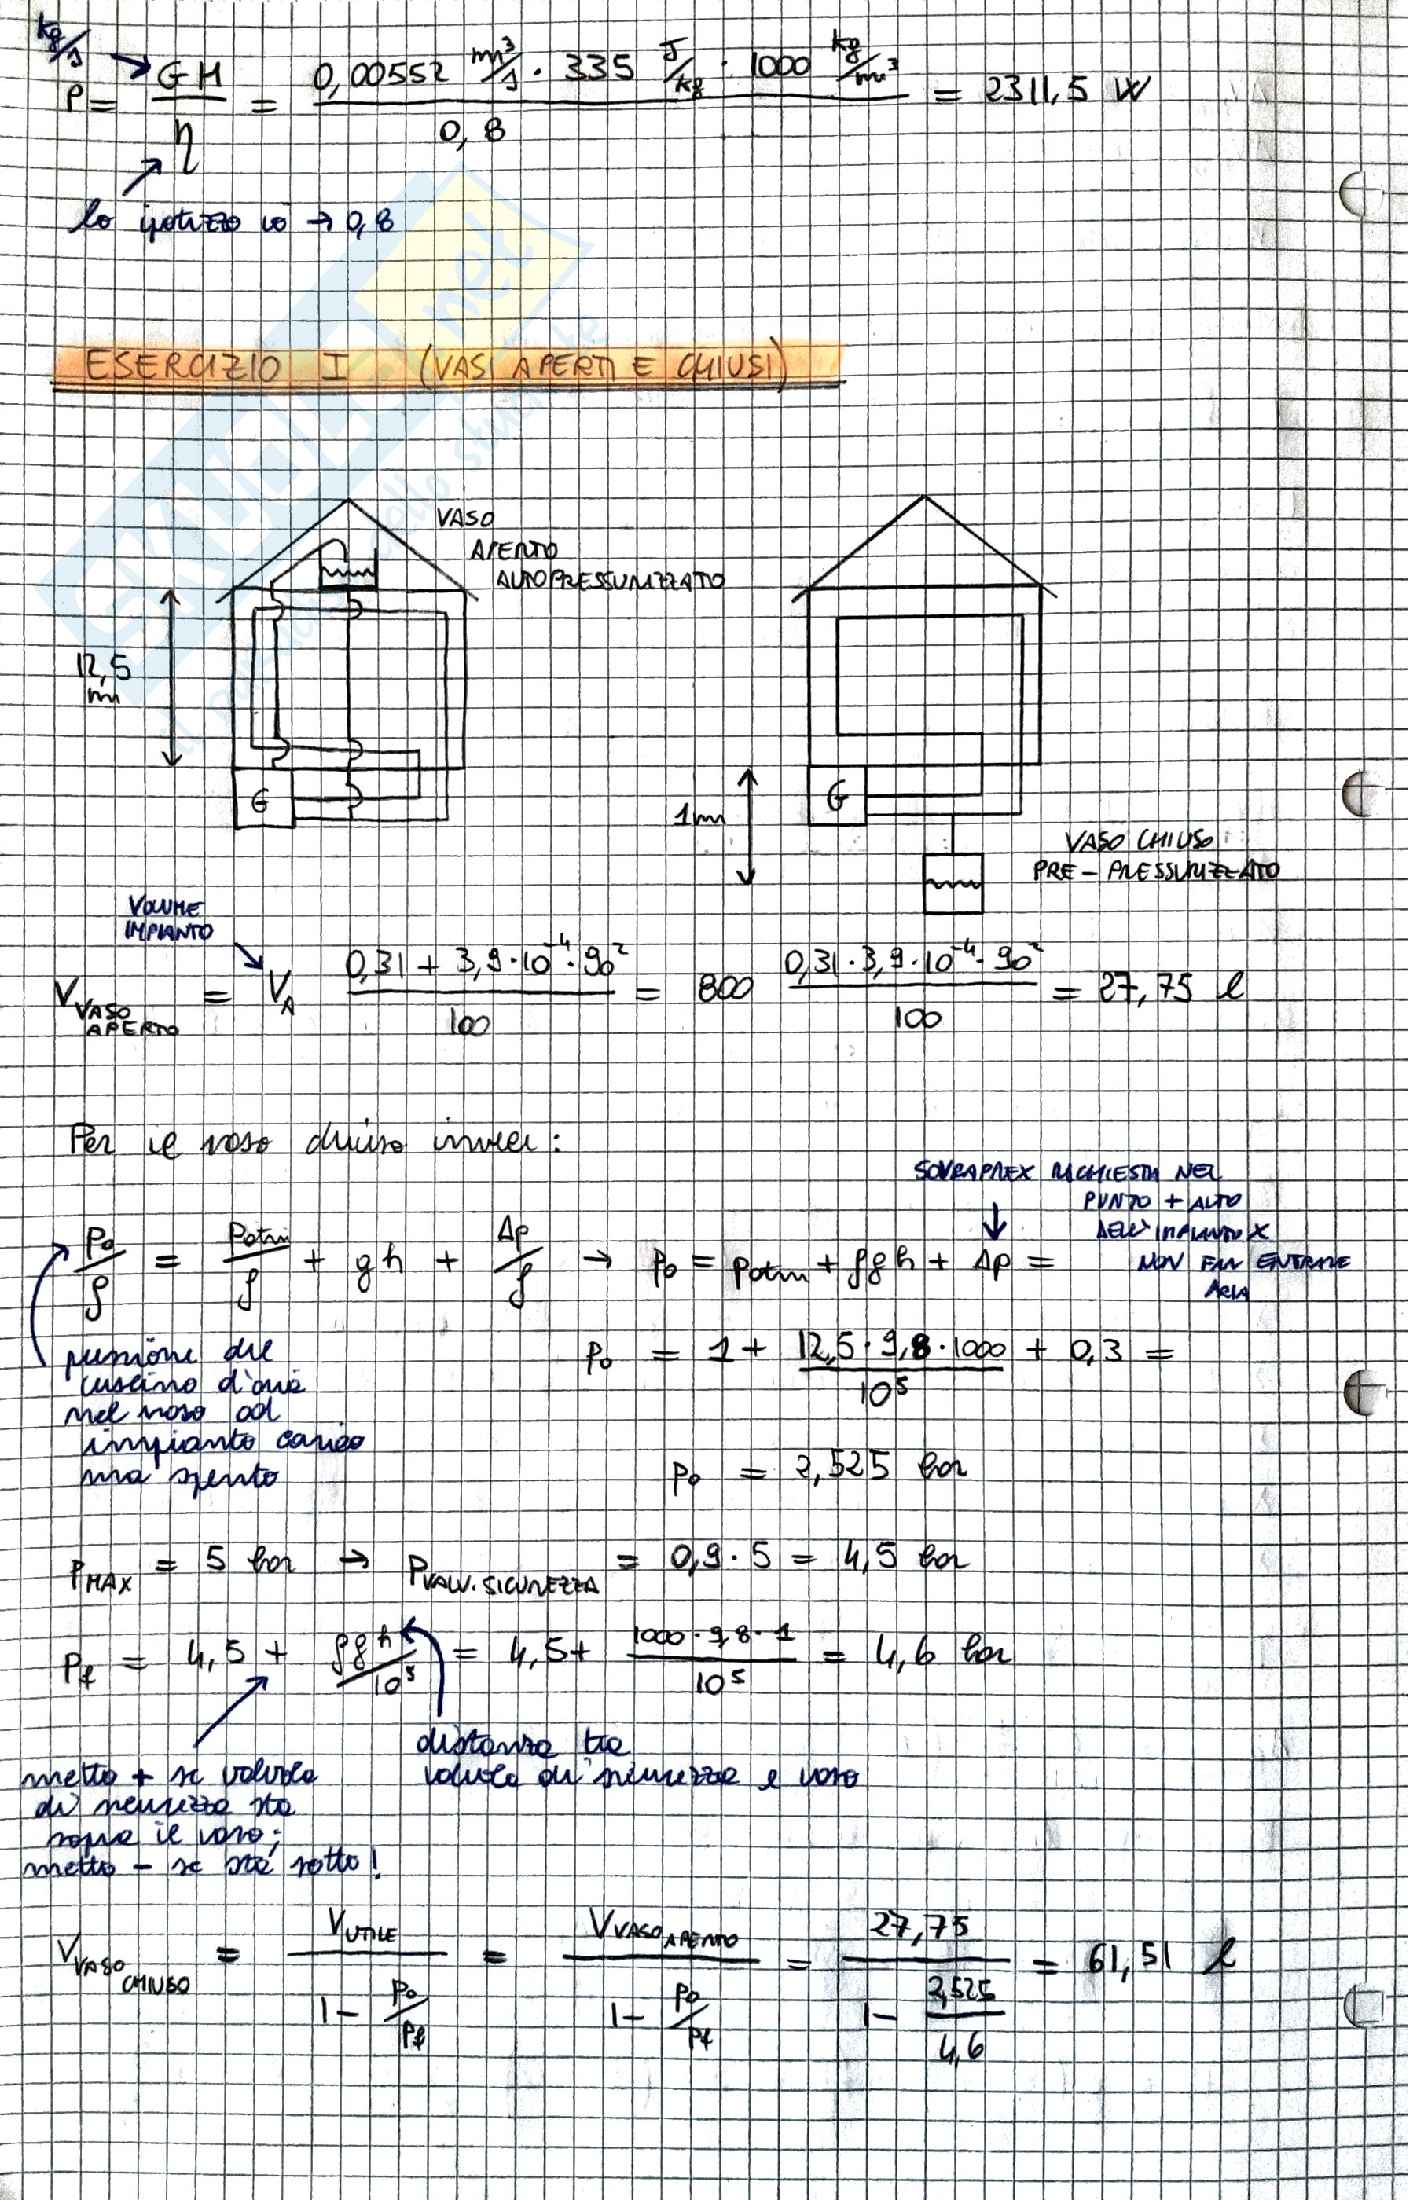 kg/s
P = GH/η = (0,00552 m³/s · 335 J/kg · 1000 kg/m³)/0,8 = 2311,5 W
lo ipotizzo io → 0,8
ESERCIZIO I (VASI APERTI E CHIUSI)
VASO
APERTO
AUTOPRESSURIZZATO
12,5
m
G
G
1m
VASO CHIUSO
PRE-PRESSURIZZATO
VOLUME
IMPIANTO
V VASO APERTO = V_A (0,31 + 3,9·10⁻⁴·90²)/100 = 800 (0,31·3,9·10⁻⁴·90²)/100 = 27,75 l
Per il vaso chiuso invece:
SOVRAPREX RICHIESTA NEL
PUNTO + ALTO
DELL'IMPIANTO X
NON FAR ENTRARE
ARIA
p₀/ρ = patm/ρ + gh + Δp/ρ → p₀ = patm + ρgh + Δp =
pressione del
cuscino d'aria
nel vaso ad
impianto carico
ma spento
p₀ = 1 + (12,5·9,8·1000)/10⁵ + 0,3 =
p₀ = 2,525 bar
P_MAX = 5 bar → P_VALV.SICUREZZA = 0,9·5 = 4,5 bar
P_f = 4,5 + ρgh/10⁵ = 4,5 + (1000·9,8·1)/10⁵ = 4,6 bar
distanza tra
valvola di sicurezza e vaso
metto + se valvola
di sicurezza sta
sopra il vaso;
metto - se sta sotto!
V VASO CHIUSO = V_UTILE/(1 - p₀/p_f) = V_VASO APERTO/(1 - p₀/p_f) = 27,75/(1 - 2,525/4,6) = 61,51 l